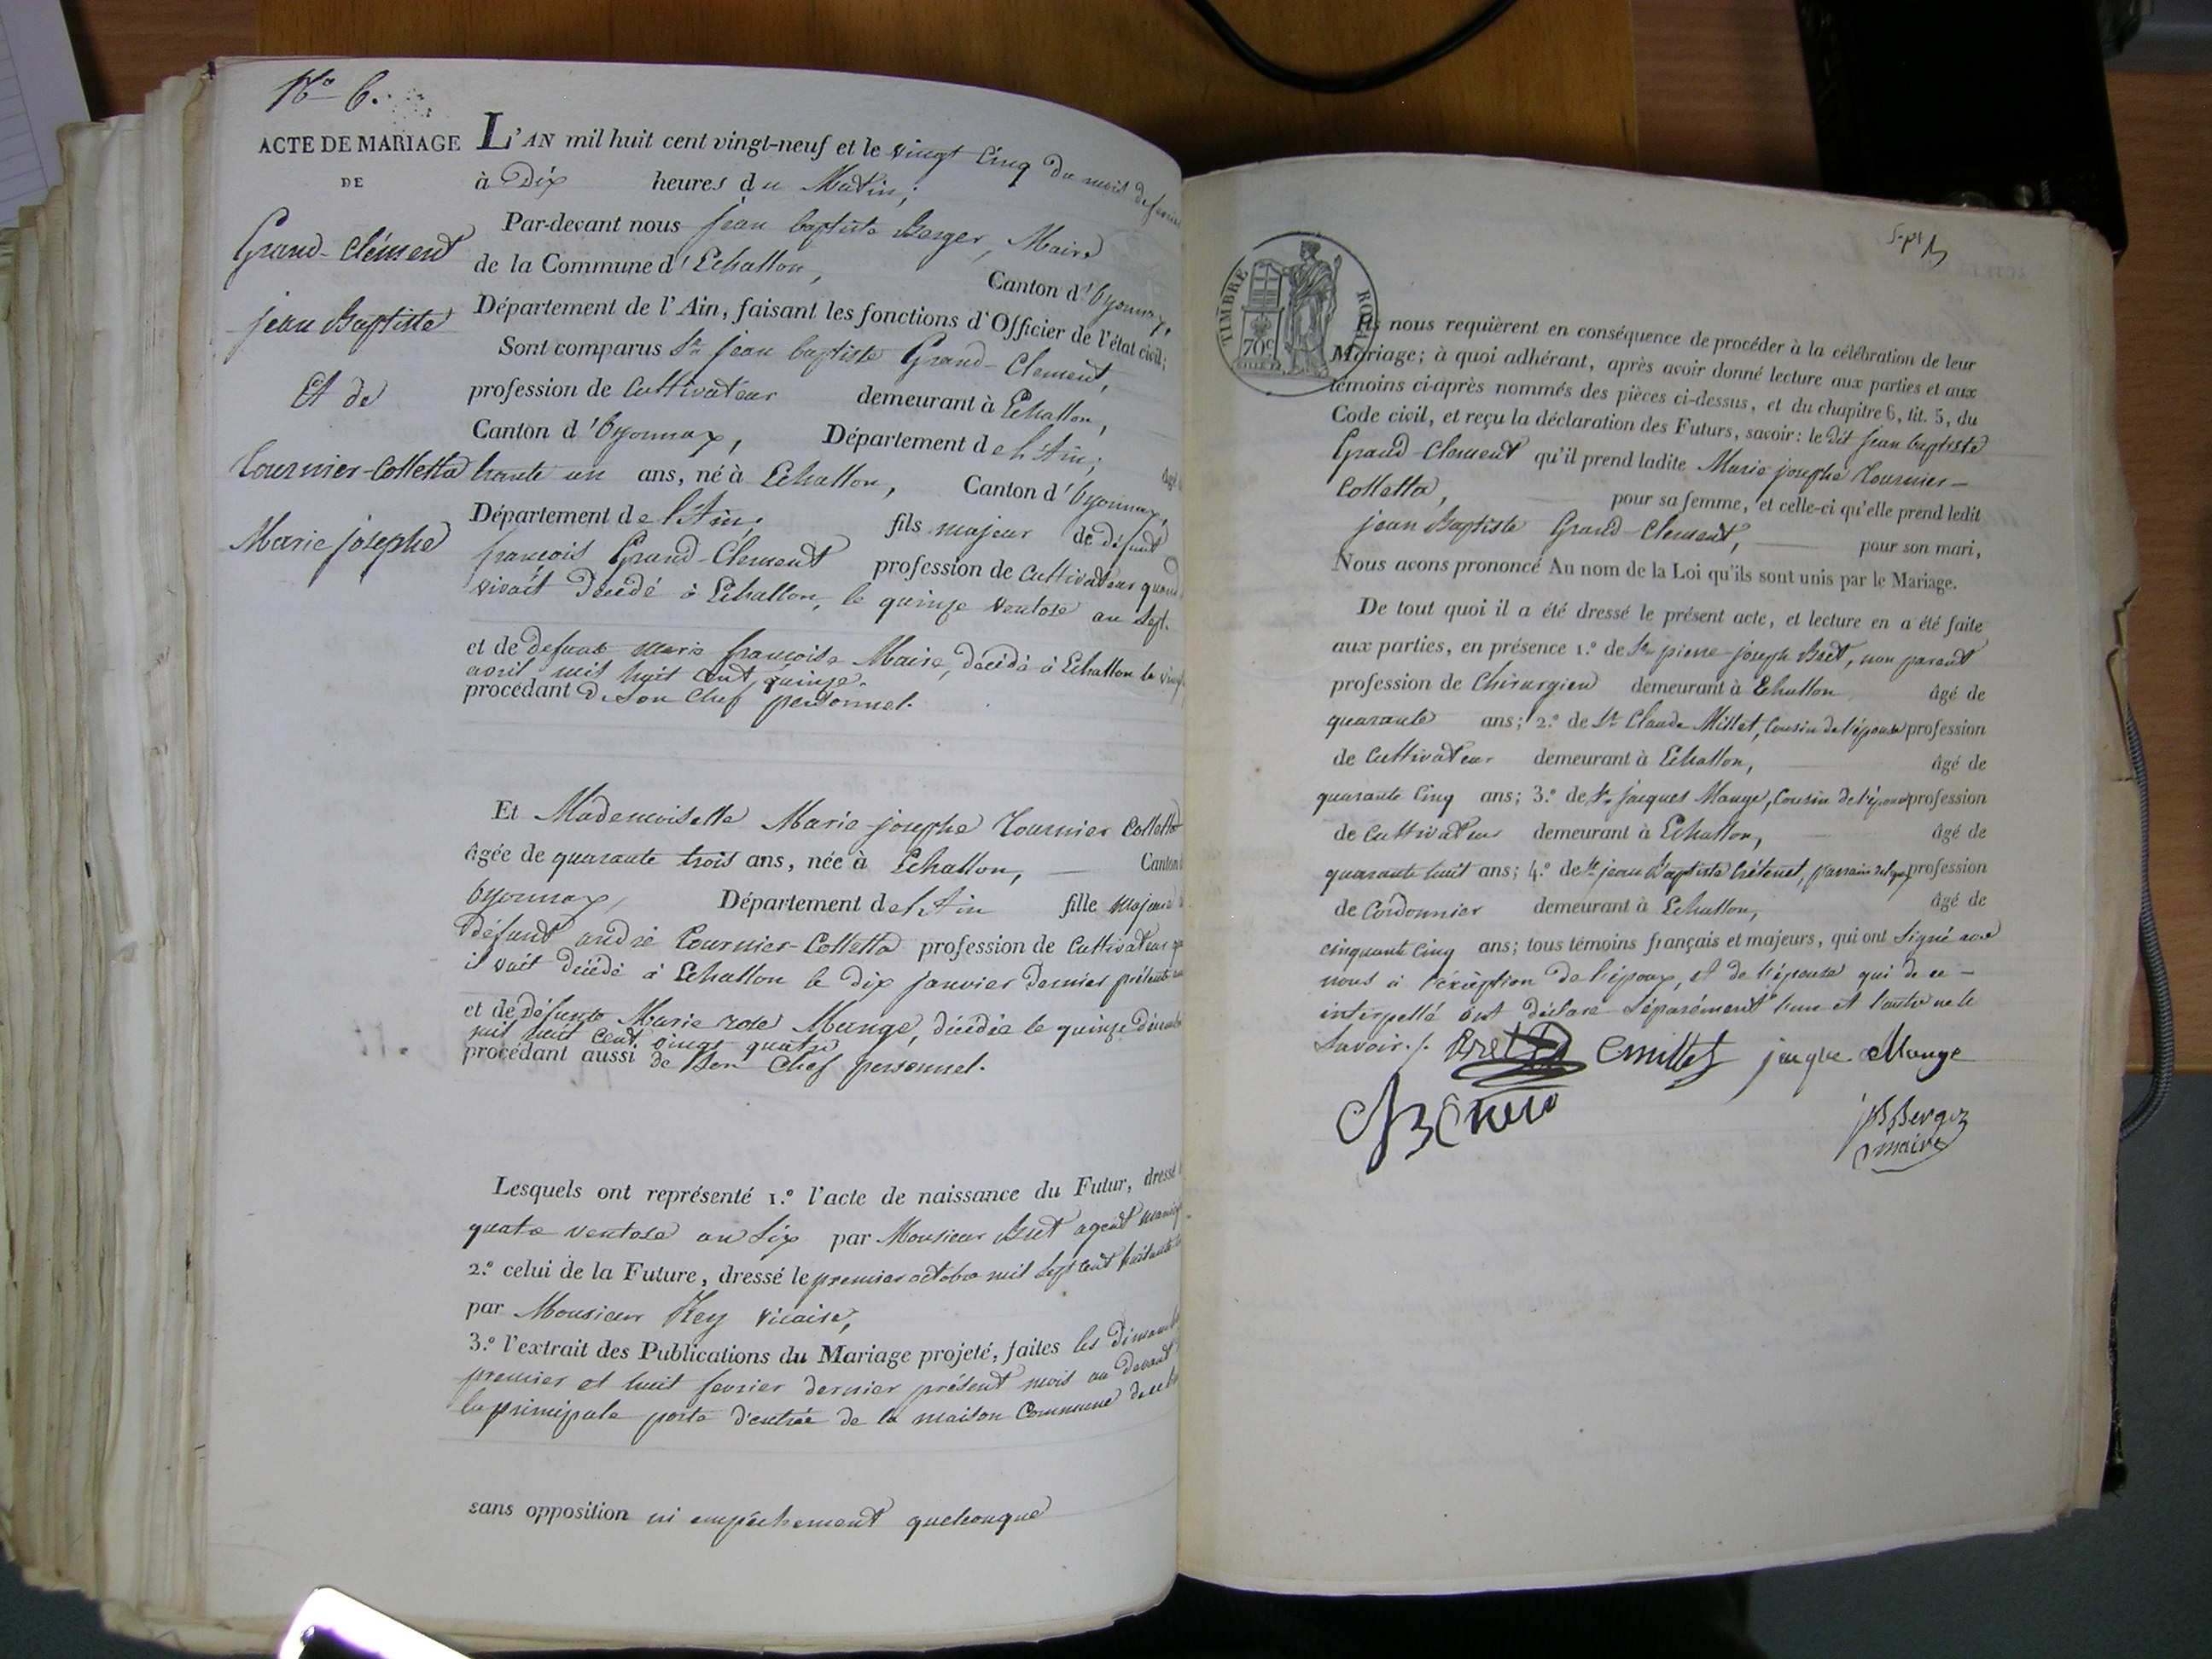 No 6.
ACTE DE MARIAGE
DE
Grand-Clément
jean Baptiste
Et de
Tournier-Colletta
Marie josephe
L'AN mil huit cent vingt-neuf et le vingt cinq du mois de
à Dix heures du Matin;
Par-devant nous jean baptiste Berger, Maire
de la Commune d'Echallon, Canton d'Oyonnax,
Département de l'Ain, faisant les fonctions d'Officier de l'état civil;
Sont comparus Sr. jean baptiste Grand-Clement,
profession de Cultivateur demeurant à Echallon,
Canton d'Oyonnax, Département de l'Ain;
trente un ans, né à Echallon, Canton d'Oyonnax,
Département de l'Ain. fils majeur de défunt
françois Grand-Clement profession de Cultivateur quand
vivait Décédé à Echallon, le quinze ventose an Sept.
et de defunte Marie françoise Maire, décédé à Echallon le
avril mil huit Cent quinze.
procédant De Son Chef personnel.
Et Mademoiselle Marie josephe Tournier Colletta
âgée de quarante trois ans, née à Echallon, Canton
Oyonnax, Département de l'Ain fille majeure
défunt andré Tournier-Colletta profession de Cultivateur
il vait décédé à Echallon le dix janvier Dernier
et de Défunte Marie rose Mange, décédée le quinze
mil huit Cent vingt quatre
procédant aussi de Son Chef personnel.
Lesquels ont représenté 1.º l'acte de naissance du Futur, dressé
quatre ventose an Six par Monsieur Bret agent
2.º celui de la Future, dressé le premier octobre mil Sept cent
par Monsieur Rey vicaire,
3.º l'extrait des Publications du Mariage projeté, faites les
premier et huit fevrier dernier présent mois au devant
la principale porte d'entrée de la maison Commune
sans opposition ni empêchement quelconque
TIMBRE ROYAL
70c
Ils nous requièrent en conséquence de procéder à la célébration de leur
Mariage; à quoi adhérant, après avoir donné lecture aux parties et aux
témoins ci-après nommés des pièces ci-dessus, et du chapitre 6, tit. 5, du
Code civil, et reçu la déclaration des Futurs, savoir: le dit jean baptiste
Grand-Clement qu'il prend ladite Marie josephe Tournier-
Colletta, pour sa femme, et celle-ci qu'elle prend ledit
jean Baptiste Grand-Clement, pour son mari,
Nous avons prononcé Au nom de la Loi qu'ils sont unis par le Mariage.
De tout quoi il a été dressé le présent acte, et lecture en a été faite
aux parties, en présence 1.º de Sr. pierre joseph Bret, non parent
profession de Chirurgien demeurant à Echallon âgé de
quarante ans; 2.º de Sr. Claude Millet, Cousin de l'épouse profession
de Cultivateur demeurant à Echallon, âgé de
quarante Cinq ans; 3.º de Sr. jacques Mange, Cousin de l'épouse profession
de Cultivateur demeurant à Echallon, âgé de
quarante huit ans; 4.º de Sr. jean Baptiste Crétenet, profession
de Cordonnier demeurant à Echallon, âgé de
cinquante Cinq ans; tous témoins français et majeurs, qui ont Signé avec
nous à l'éxcéption De l'époux, et de l'épouse qui de ce -
interpellé ont déclaré Séparément l'un et l'autre ne le
Savoir./. Bret CMillet jacque Mange
JB Berger
maire